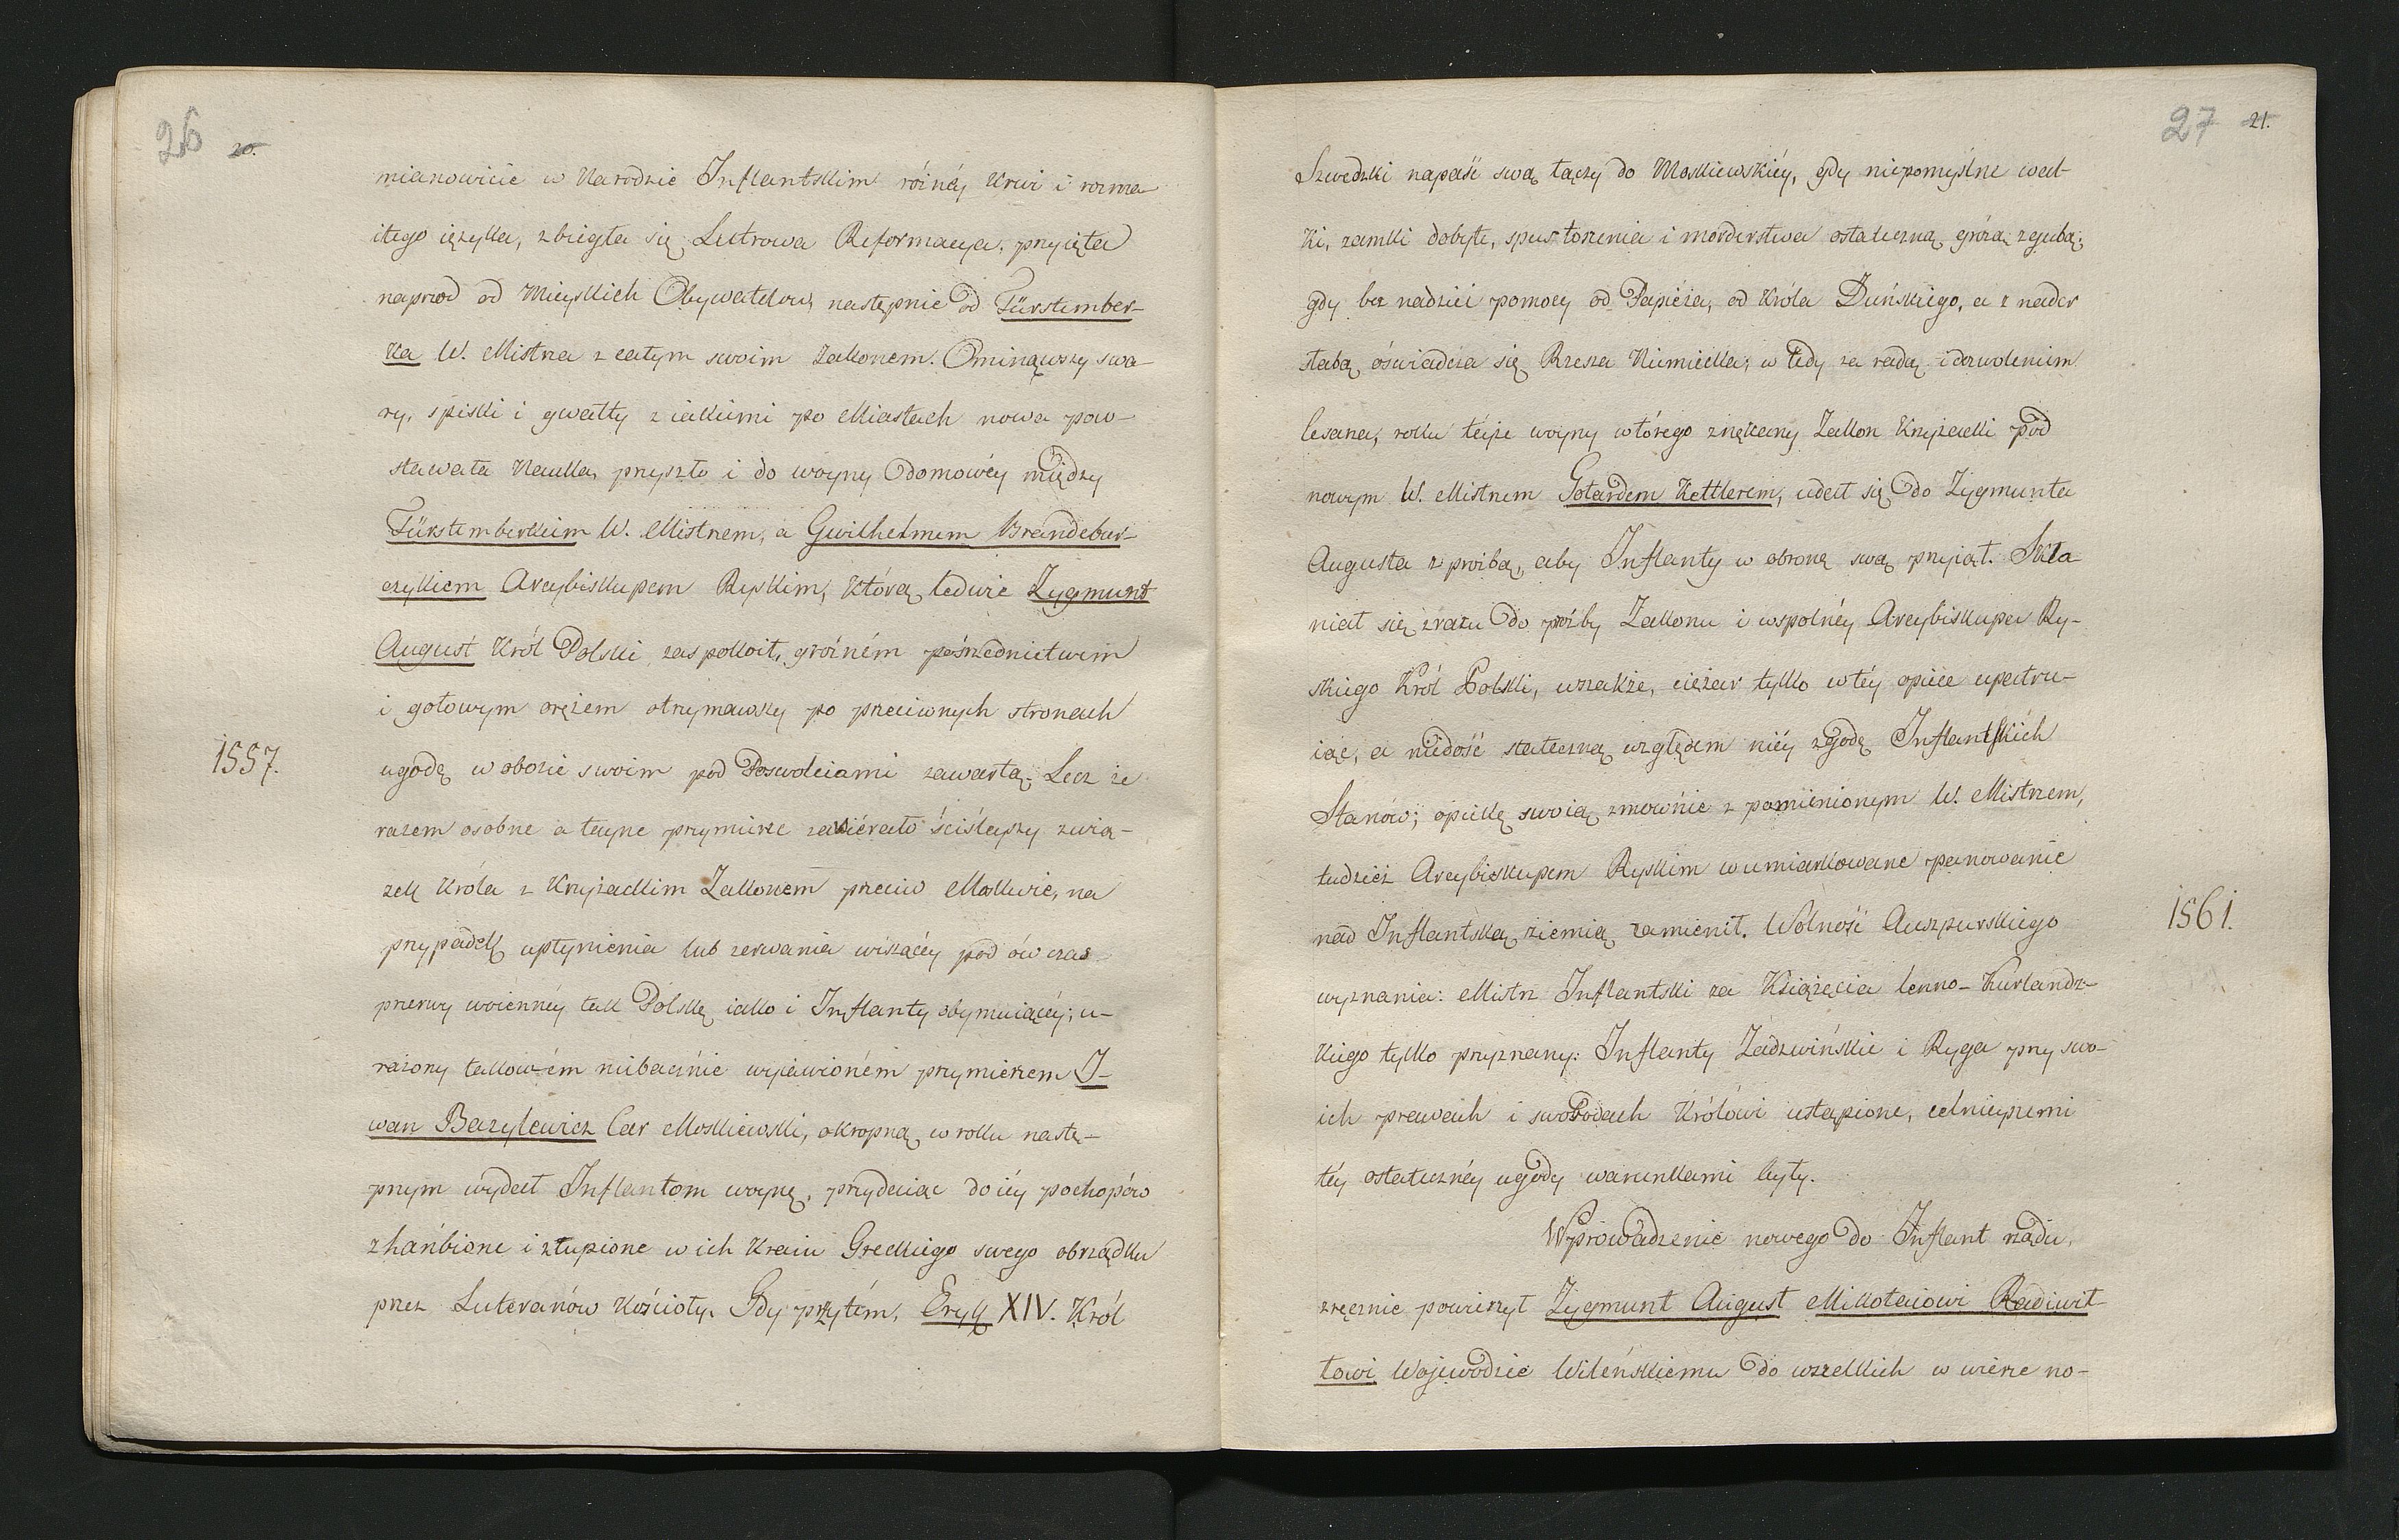 26 20.
mianowicie w Narodzie Inflantskim róźnéy krwi i rozma
itego ięzyka, zbiegła się Lutrowa Reformacya: przyięta
naprzod od Mieyskich Obywatelow, następnie od Fürstember-
ka W. Mistrza z całym swoim Zakonem. Ominąwszy swa-
ry, spiski i gwałty z iakiemi po Miastach nowa pow-
stawała Nauka, przyszło i do woyny domowéy między
Fürstemberkiem W. Mistrzem, a Gwilhelmem Brandebur-
czykiem Arcybiskupem Ryskim, którą ledwie Zygmunt
August Król Polski zaspokoił, gróźném pośrzednictwem
i gotowym orężem otrzymawszy po przeciwnych stronach
1557.
ugodę w obozie swoim pod Poswolciami zawartą. Lecz że
razem osobne a tayne przymierze zawiérało ściślejszy zwią-
zek Króla z Krzyżackim Zakonem przeciw Moskwie, na
przypadek upłynienia lub zerwania wiszącéy pod ów czas
przerwy woiennéy tak Polskę iako i Inflanty obymuiącéy; u-
rażony takowém niebacznie wyiawioném przymierzem I-
wan Bazylewicz Car Moskiewski, okropną w roku nastę-
pnym wydał Inflantom woynę, przydaiąc do iéy pochopów
zhańbione i złupione w ich Kraiu Greckiego swego obrządku
przez Luteranów Kościoły. Gdy przytém, Eryk XIV. Król
27 21.
Szwedzki napaść swą łączy do Moskiewskiéy, gdy niepomyślne wal-
ki, zamki dobyte, spustoszenia i morderstwa ostateczną grożą zgubą;
gdy bez nadziei pomocy od Papieża, od Króla Duńskiego, a z nader
słabą oświadcza się Rzesza Niemiecka; w tedy za radą i dozwoleniem
Cesarza, roku téyże woyny wtórego znękany Zakon Krzyżacki pod
nowym W. Mistrzem Gotardem Kettlerem, udał się do Zygmunta
Augusta z prośbą, aby Inflanty w obronę swą przyiął. Skła
niał się zrazu do prośby Zakonu i wspolnéy Arcybiskupa Ry-
skiego Król Polski, wszakże, ciężar tylko w téy opiece upatru-
iąc, a niedość stateczną względem niéy zgodę Inflantskich
Stanów; opiekę swoią zmownie z pomienionym W. Mistrzem,
tudzież Arcybiskupem Ryskim w umiarkowane panowanie
1561.
nad Inflantską ziemią zamienił. Wolność Auszpurskiego
wyznania: Mistrz Inflantski za Książęcia lenno-Kurlandz-
kiego tylko przyznany: Inflanty Zadzwińskie i Ryga przy swo-
ich prawach i swobodach Królowi ustąpione, celnieyszemi
téy ostatecznéy ugody warunkami były.
Wprowadzenie nowego do Inflant rządu,
zręcznie powierzył Zygmunt August Mikołaiowi Radziwił
łowi Wojewodzie Wileńskiemu do wszelkich w wierze no-